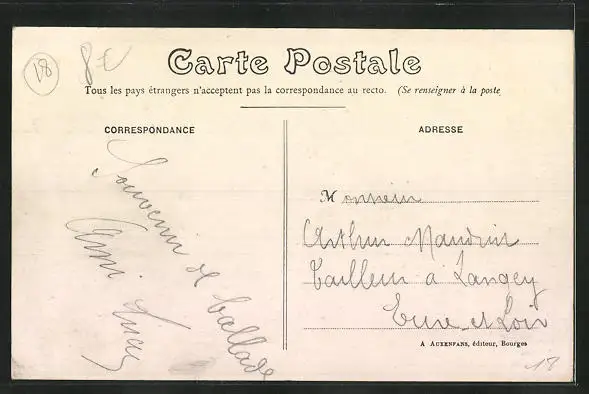 18
8€
Carte Postale
Tous les pays étrangers n'acceptent pas la correspondance au recto. (Se renseigner à la poste
CORRESPONDANCE
Souvenir de ballade
Ami
ADRESSE
Monsieur
Arthur Mandrin
Tailleur à Langey
Eure-et-Loir
A AUXENFANS, éditeur, Bourges
18